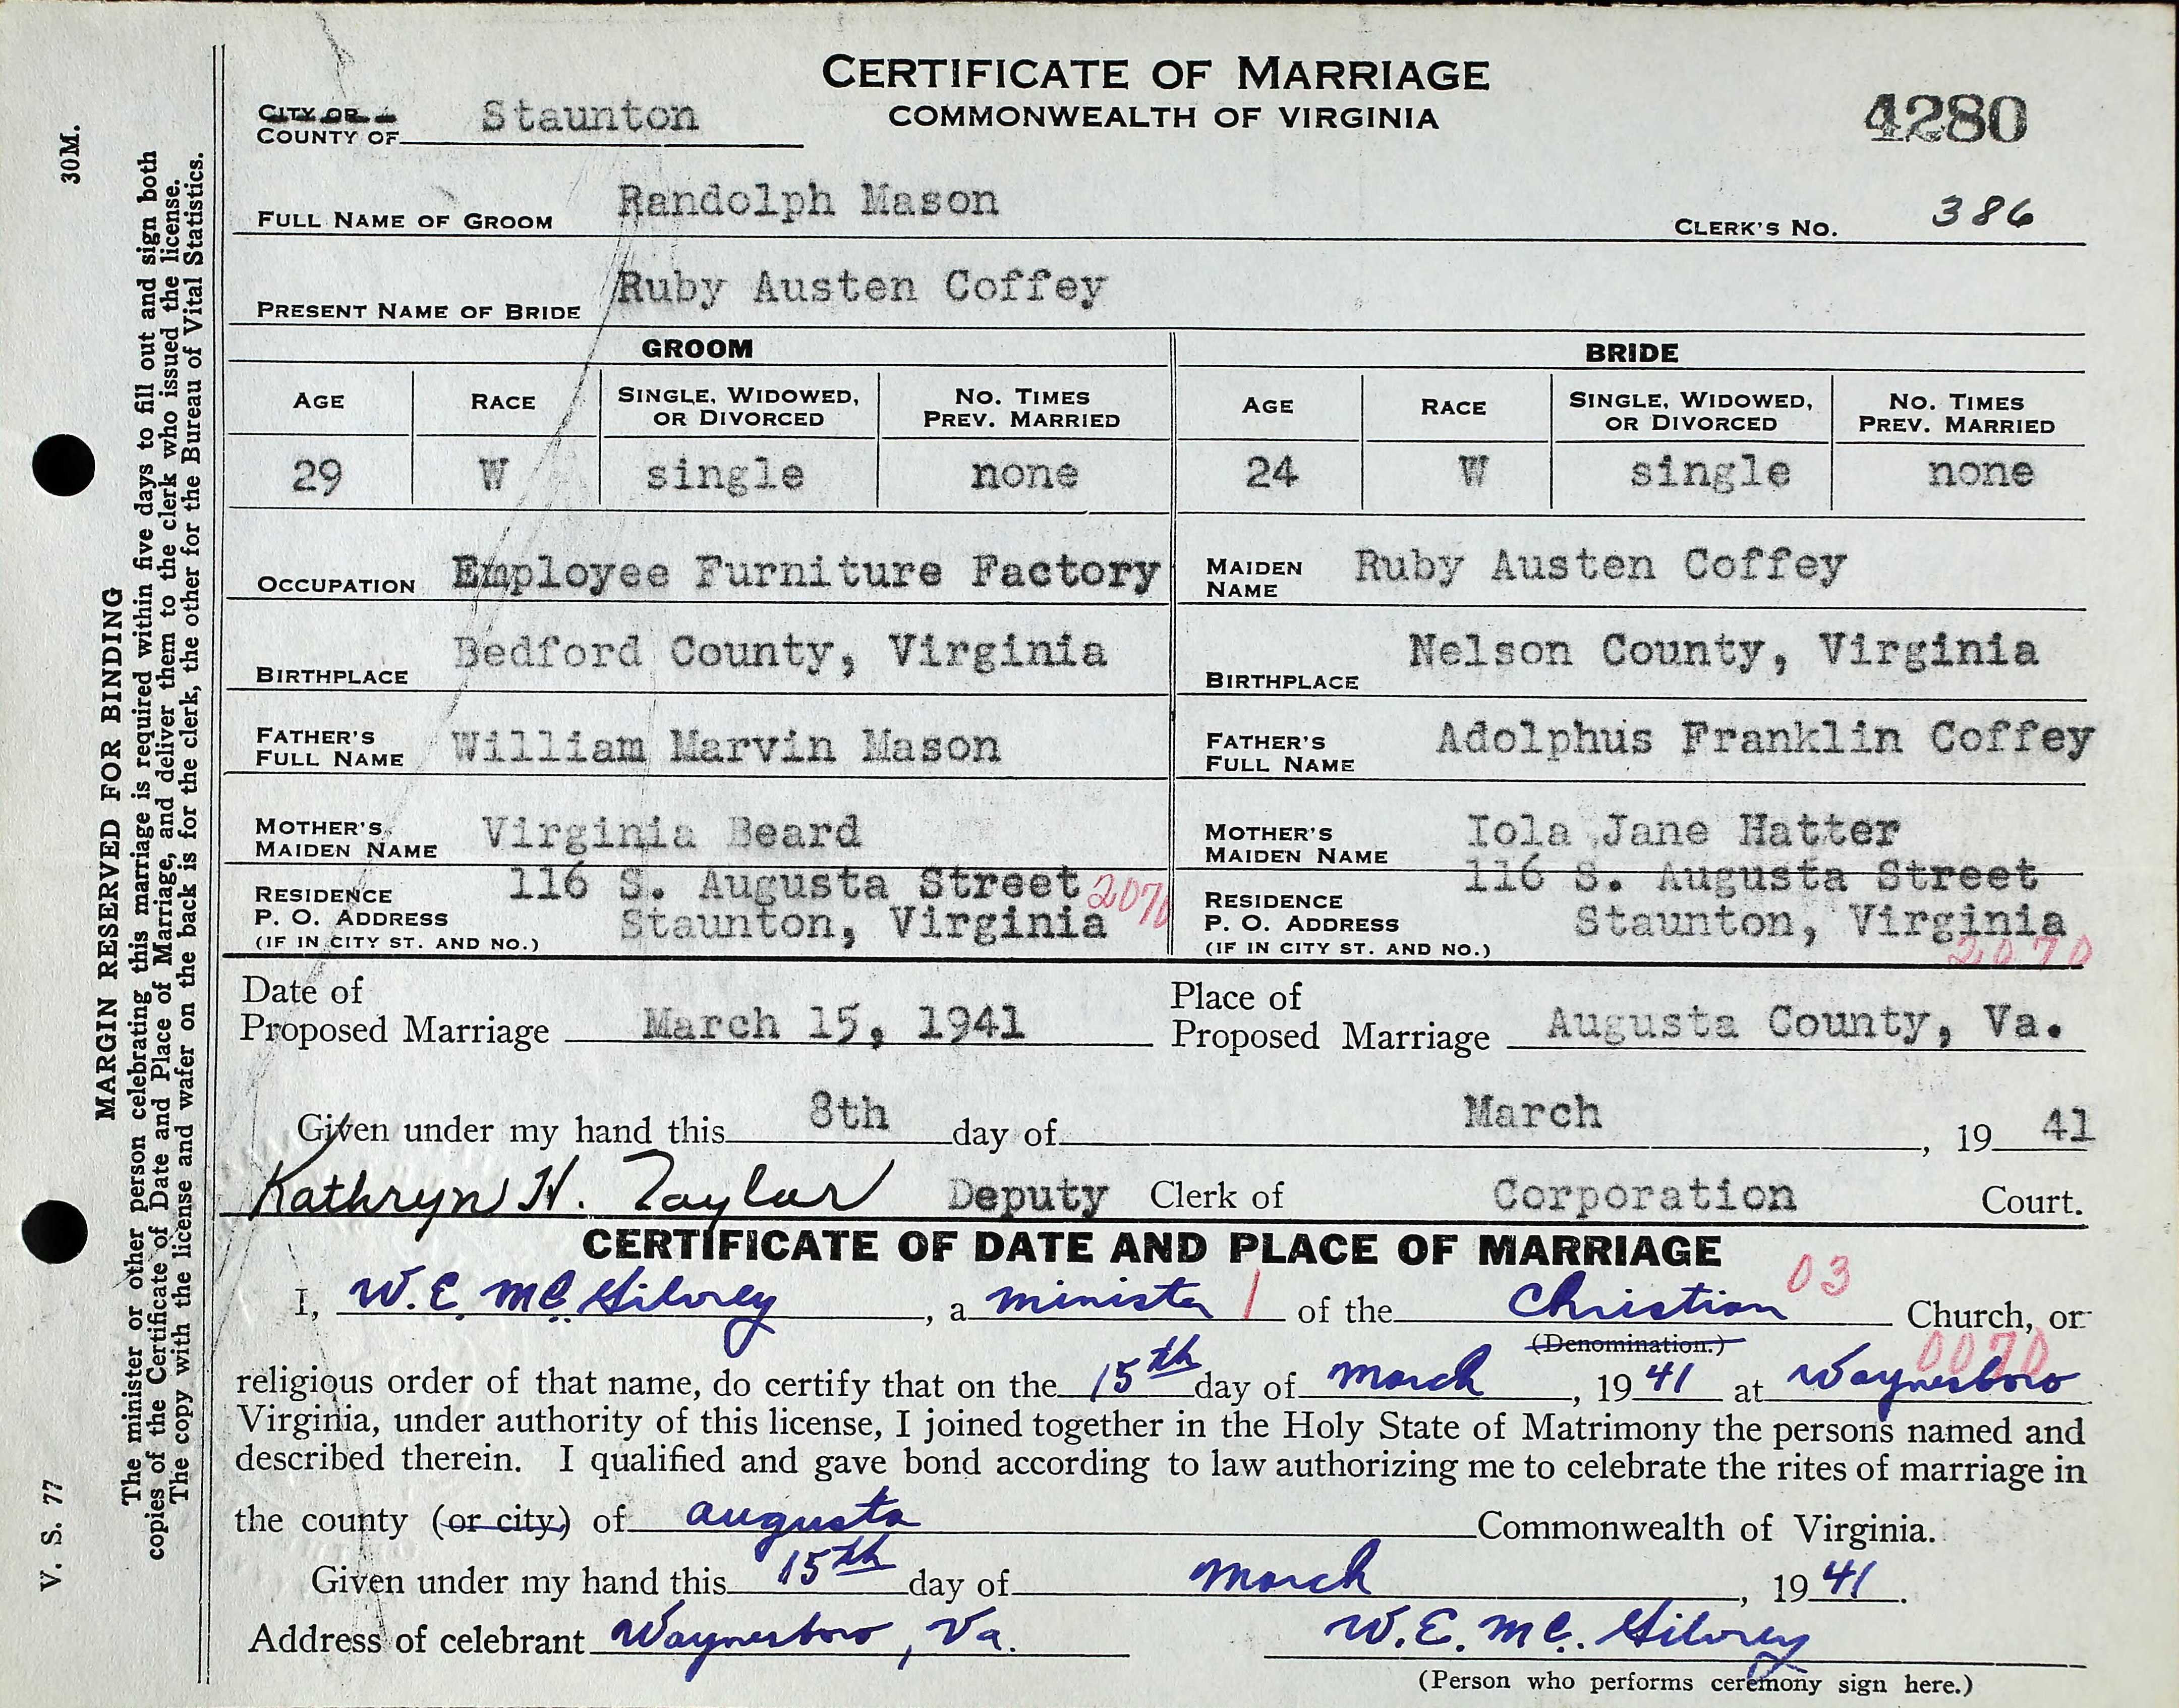 CERTIFICATE OF MARRIAGE
COMMONWEALTH OF VIRGINIA
4280
CITY OR
COUNTY OF Staunton
FULL NAME OF GROOM Randolph Mason CLERK'S NO. 386
PRESENT NAME OF BRIDE Ruby Austen Coffey
GROOM BRIDE
AGE RACE SINGLE, WIDOWED, OR DIVORCED NO. TIMES PREV. MARRIED AGE RACE SINGLE, WIDOWED, OR DIVORCED NO. TIMES PREV. MARRIED
29 W single none 24 W single none
OCCUPATION Employee Furniture Factory MAIDEN NAME Ruby Austen Coffey
BIRTHPLACE Bedford County, Virginia BIRTHPLACE Nelson County, Virginia
FATHER'S FULL NAME William Marvin Mason FATHER'S FULL NAME Adolphus Franklin Coffey
MOTHER'S MAIDEN NAME Virginia Beard MOTHER'S MAIDEN NAME Iola Jane Hatter
RESIDENCE P. O. ADDRESS (IF IN CITY ST. AND NO.) 116 S. Augusta Street Staunton, Virginia 2070 RESIDENCE P. O. ADDRESS (IF IN CITY ST. AND NO.) 116 S. Augusta Street Staunton, Virginia 2070
Date of Proposed Marriage March 15, 1941 Place of Proposed Marriage Augusta County, Va.
Given under my hand this 8th day of March, 1941
Kathryn H. Taylor Deputy Clerk of Corporation Court.
CERTIFICATE OF DATE AND PLACE OF MARRIAGE
I, W. E. McGilvrey, a minister 1 of the Christian 03 Church, or
(Denomination.) 0070
religious order of that name, do certify that on the 15th day of March, 1941 at Waynesboro
Virginia, under authority of this license, I joined together in the Holy State of Matrimony the persons named and
described therein. I qualified and gave bond according to law authorizing me to celebrate the rites of marriage in
the county (or city) of Augusta Commonwealth of Virginia.
Given under my hand this 15th day of March, 1941.
Address of celebrant Waynesboro, Va. W. E. Mc. Gilvrey
(Person who performs ceremony sign here.)
30M.
V. S. 77
MARGIN RESERVED FOR BINDING
The minister or other person celebrating this marriage is required within five days to fill out and sign both
copies of the Certificate of Date and Place of Marriage, and deliver them to the clerk who issued the license.
The copy with the license and wafer on the back is for the clerk, the other for the Bureau of Vital Statistics.